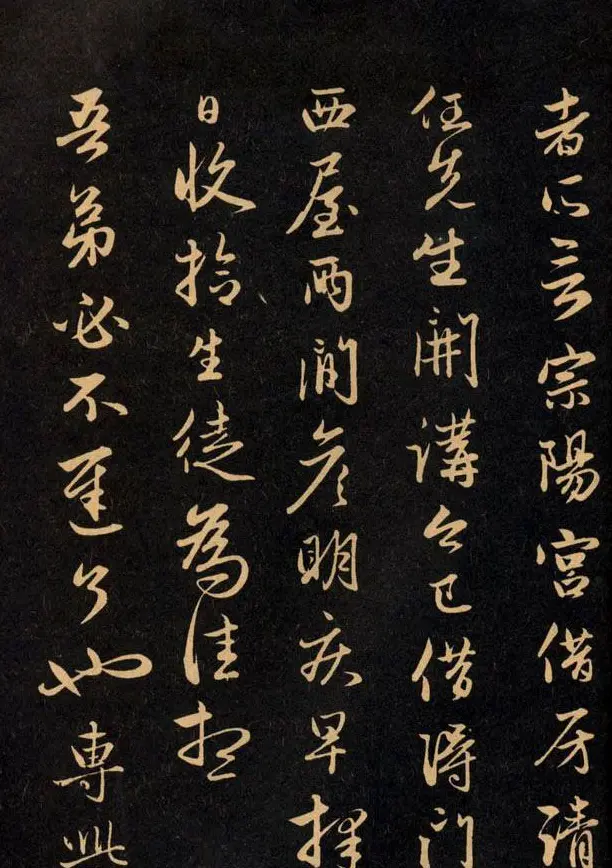 者所言宗陽宮借房請
任先生開講今已借得門
西屋兩間彦明疾早擇
日收拾生徒為佳想
吾弟必不遲了也專此